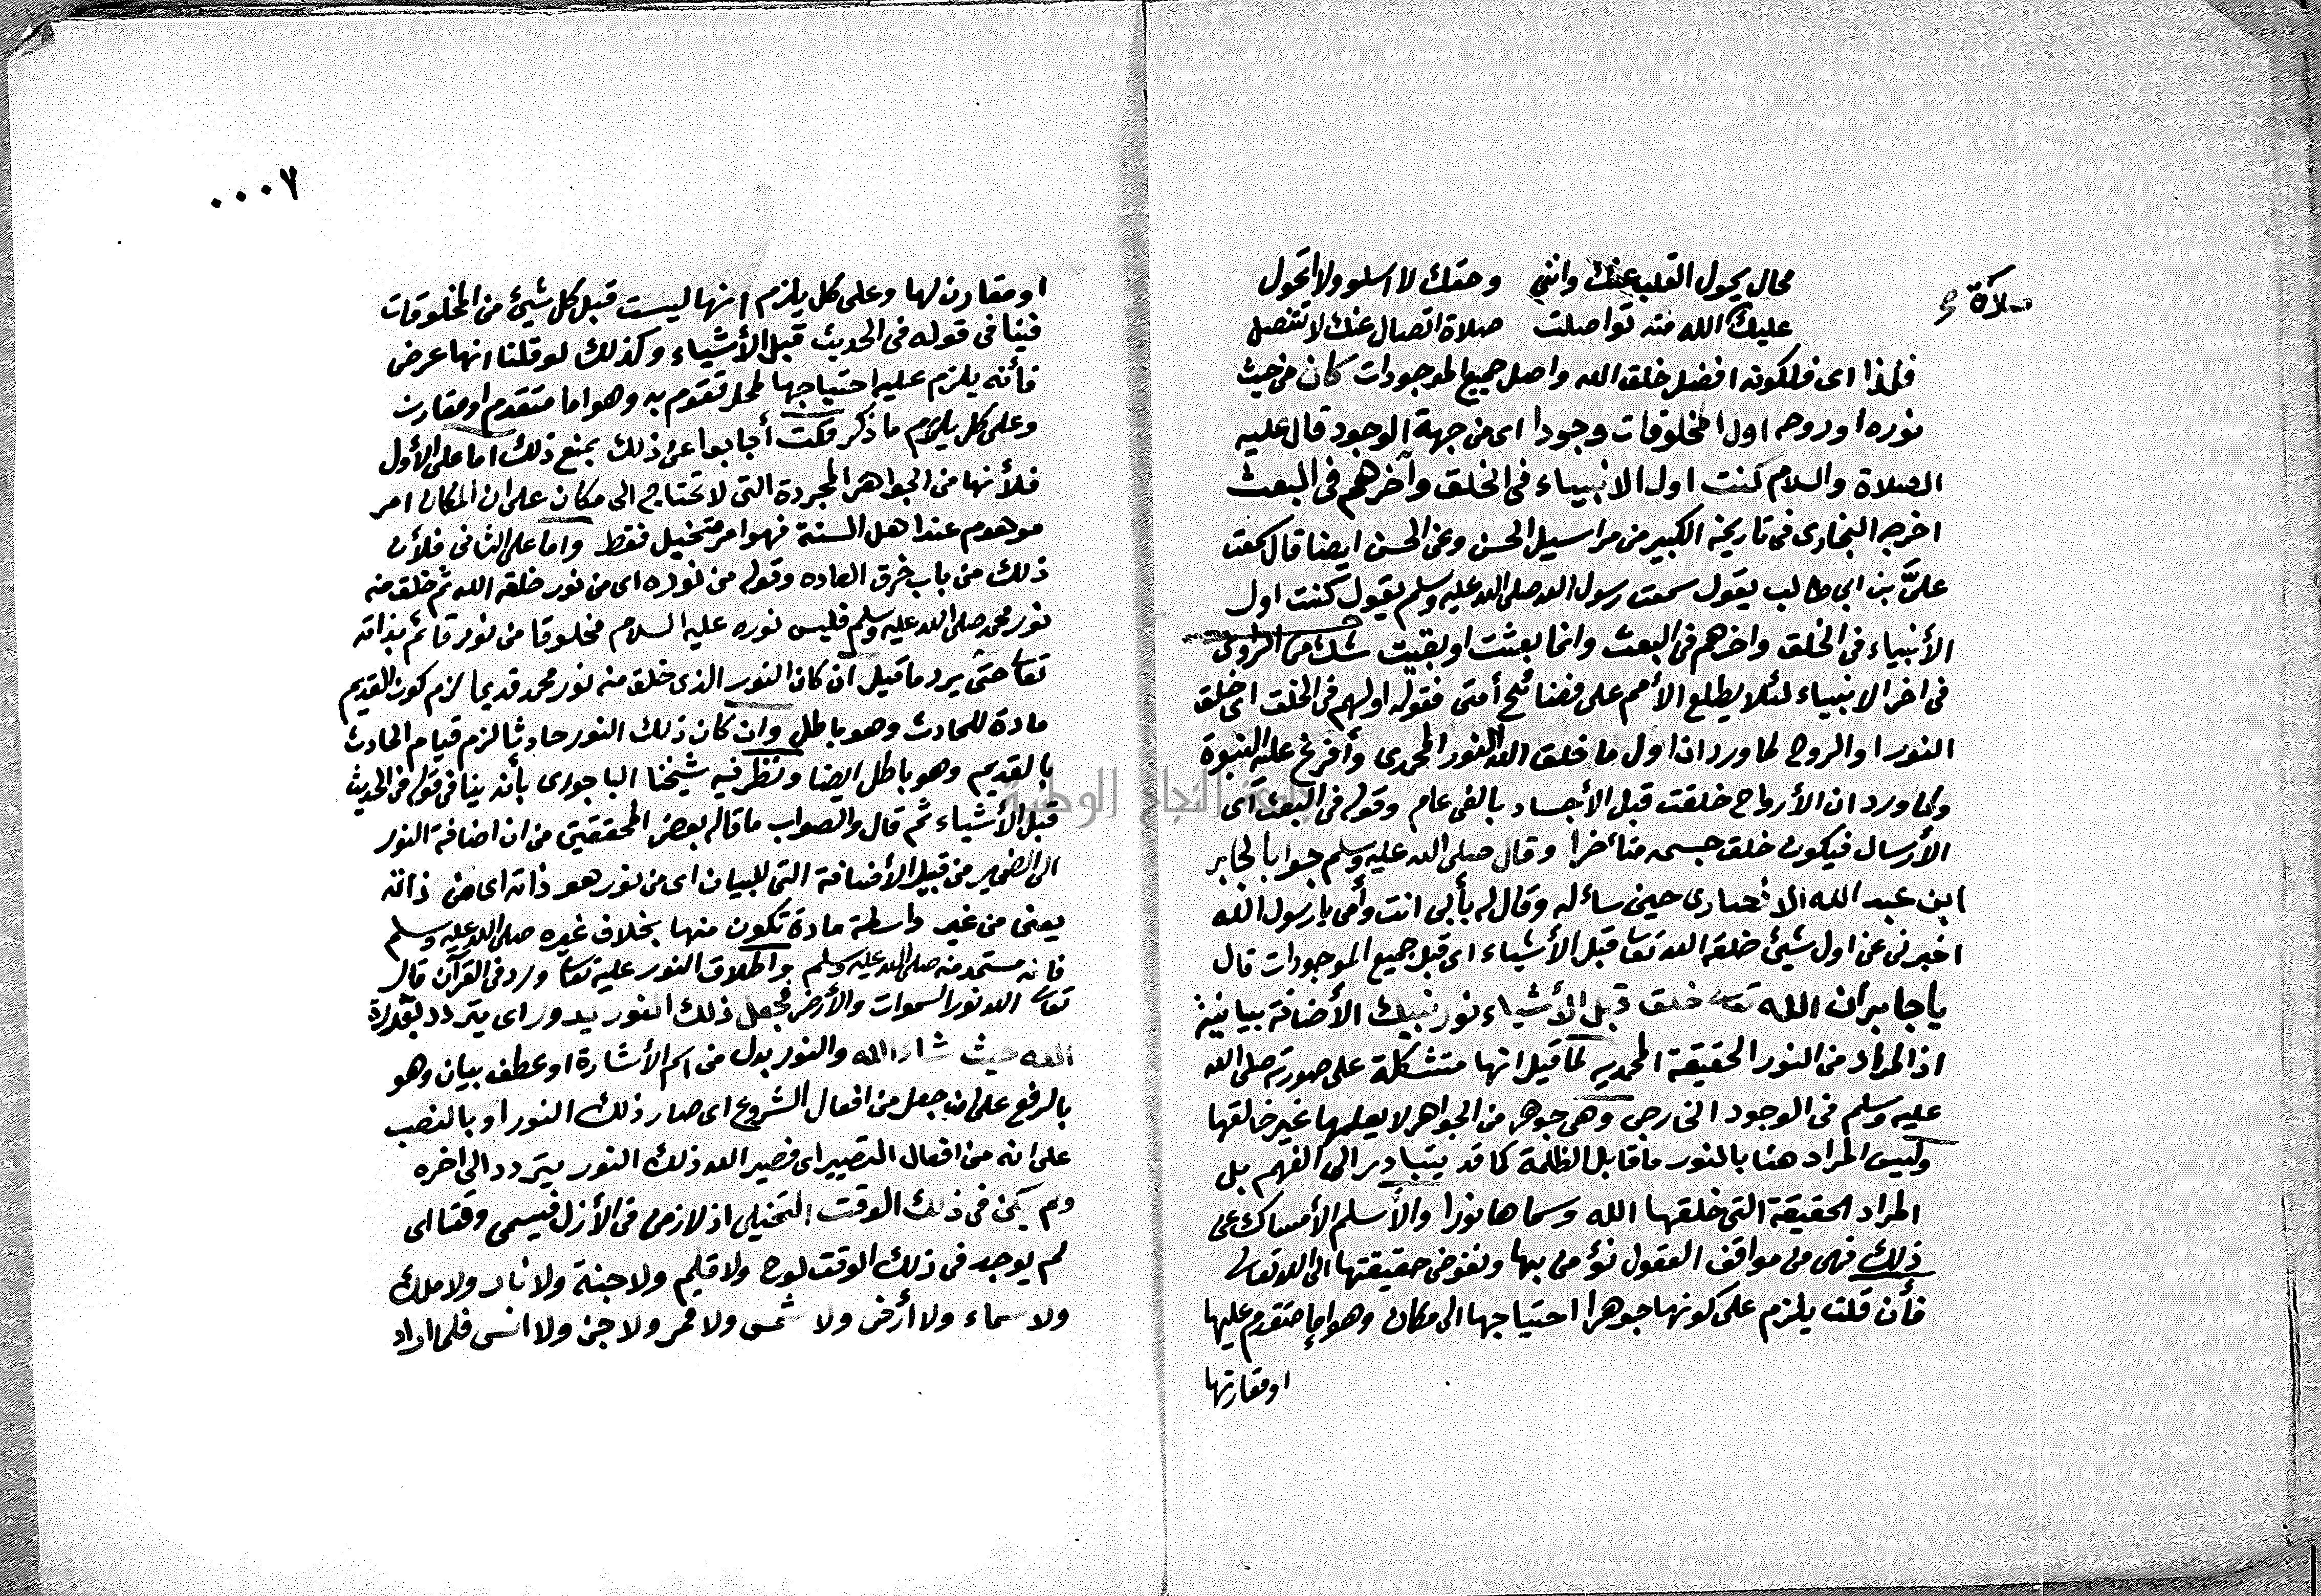 محال يحول القلب عنك وانني   وحقك لا اسلو ولا اتحول
عليك الله منه تواصلت   صلاة اتصال عنك لا تتنصل
صلاة صح
فلهذا اى فلكونه افضل خلق الله واصل جميع الموجودات كان من حيث
نوره او روحه اول المخلوقات وجودا اى من جهة الوجود قال عليه
الصلاة والسلام كنت اول الانبياء فى الخلق وآخرهم فى البعث
اخرجه البخارى فى تاريخه الكبير من مراسيل الحسن وعن الحسن ايضا قال سمعت
علىَّ بن ابى طالب يقول سمعت رسول الله صلى الله عليه وسلم يقول كنت اول
الأنبياء فى الخلق واخرهم فى البعث وانما بعثت او بقيت شك من الروى
فى اخر الانبياء لئلا يطلع الأمم على فضائح أمتى فقوله اولهم فى الخلق اى خلق
النور او الروح لما ورد اذ اول ما خلق الله النور المحمدى وأفرغ عليه النبوة
ولما ورد ان الأرواح خلقت قبل الأجساد بالفى عام وقوله فى البعث اى
الأرسال فيكون خلق جسمه متأخرا وقال صلى الله عليه وسلم جوابا لجابر
ابن عبد الله الانصارى حين سائله وقال له بأبى انت وأمى يا رسول الله
اخبرنى عن اول شيئ خلقه الله تعا قبل الأشياء اى قبل جميع الموجودات قال
يا جابر ان الله تعا خلق قبل الأشياء نور نبيك الأضافة بيانية
اذ المراد من النور الحقيقة المحمديه لما قيل انها متشكلة على صورته صلى الله
عليه وسلم فى الوجود الخارجى وهى جوهر من الجواهر لا يعلمها غير خالقها
وليس المراد هنا بالنور ما قابل الظلمة كما قد يتبادر الى الفهم بلى
المراد الحقيقة التى خلقها الله وسماها نورا والأسلم الأمساك عن
ذلك فهى من مواقف العقول نؤمن بها ونفوض حقيقتها الى الله تعالى
فأن قلت يلزم على كونها جوهرا احتياجها الى مكان وهو إما متقدم عليها
او مقارنها
٠٠٠٧
او مقارن لها وعلى كل يلزم انها ليست قبل كل شيئ من المخلوقات
فينافى قوله فى الحديث قبل الأشياء وكذلك لو قلنا انها عرض
فأنه يلزم عليه احتياجها لمحل تقوم به وهو اما متقدم او مقارن
وعلى كل يلزم ما ذكر قلت أجابوا عن ذلك بمنع ذلك اما على الأول
فلأنها من الجواهر المجردة التى لا تحتاج الى مكان على ان المكان امر
موهوم عند اهل السنة فهو امر متخيل فقط واما على الثانى فلأن
ذلك من باب خرق العاده وقوله من نوره اى من نور خلقه الله ثم خلق منه
نور محمد صلى الله عليه وسلم فليس نوره عليه السلام مخلوقا من نور قائم بذاته
تعا حتى يرد ما قيل ان كان النور الذى خلق منه نور محمد قديما لزم كون القديم
مادة للحادث وهو باطل وان كان ذلك النور حادثا لزم قيام الحادث
بالقديم وهو باطل ايضا ونظر فيه شيخنا الباجورى بأنه ينافى قوله فى الحديث
قبل الأشياء ثم قال والصواب ما قاله بعض المحققين من ان اضافة النور
الى الضمير من قبيل الأضافة التى للبيان اى من نور هو ذاته اى من ذاته
يعنى من غير واسطة مادة تكون منها بخلاف غيره صلى الله عليه وسلم
فانه مستمد منه صلى الله عليه وسلم واطلاق النور عليه تعا ورد فى القرآن قال
تعا الله نور السموات والأرض فجعل ذلك النور يدور اى يتردد بقدرة
الله حيث شاء الله والنور بدل من اسم الأشارة او عطف بيان وهو
بالرفع على ان جعل من افعال الشروع اى صار ذلك النور او بالنصب
على انه من افعال التصيير اى فصير الله ذلك النور يتردد الى اخره
ولم يكن فى ذلك الوقت التخيلى اذ لا زمن فى الأزل فيسمى وقتا اى
لم يوجد فى ذلك الوقت لوح ولا قلم ولا جنة ولا نار ولا ملك
ولا سماء ولا أرض ولا شمس ولا قمر ولا جن ولا انسى فلما اراد
جامعة النجاح الوطنية